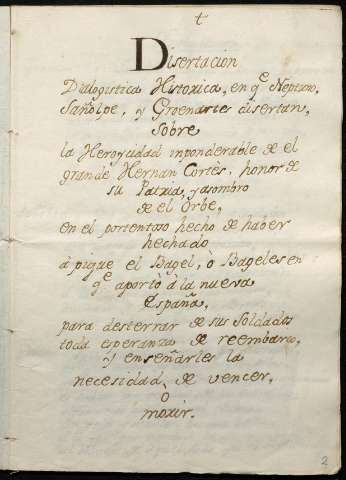 +
Disertacion
Dialogistica Historica, en qe Neptuno,
Sañolpe, y Groenartes disertan,
sobre
la Heroycidad inponderable de el
grande Hernan Cortes, honor de
su Patria, y asombro
de el Orbe,
en el portentoso hecho de haber
hechado
à pique el Bagel, ò Bageles en
qe aportò à la nueva
España,
para desterrar de sus Soldados
toda esperanza de reembarco,
y enseñarles la
necesidad de vencer,
o
morir.
2